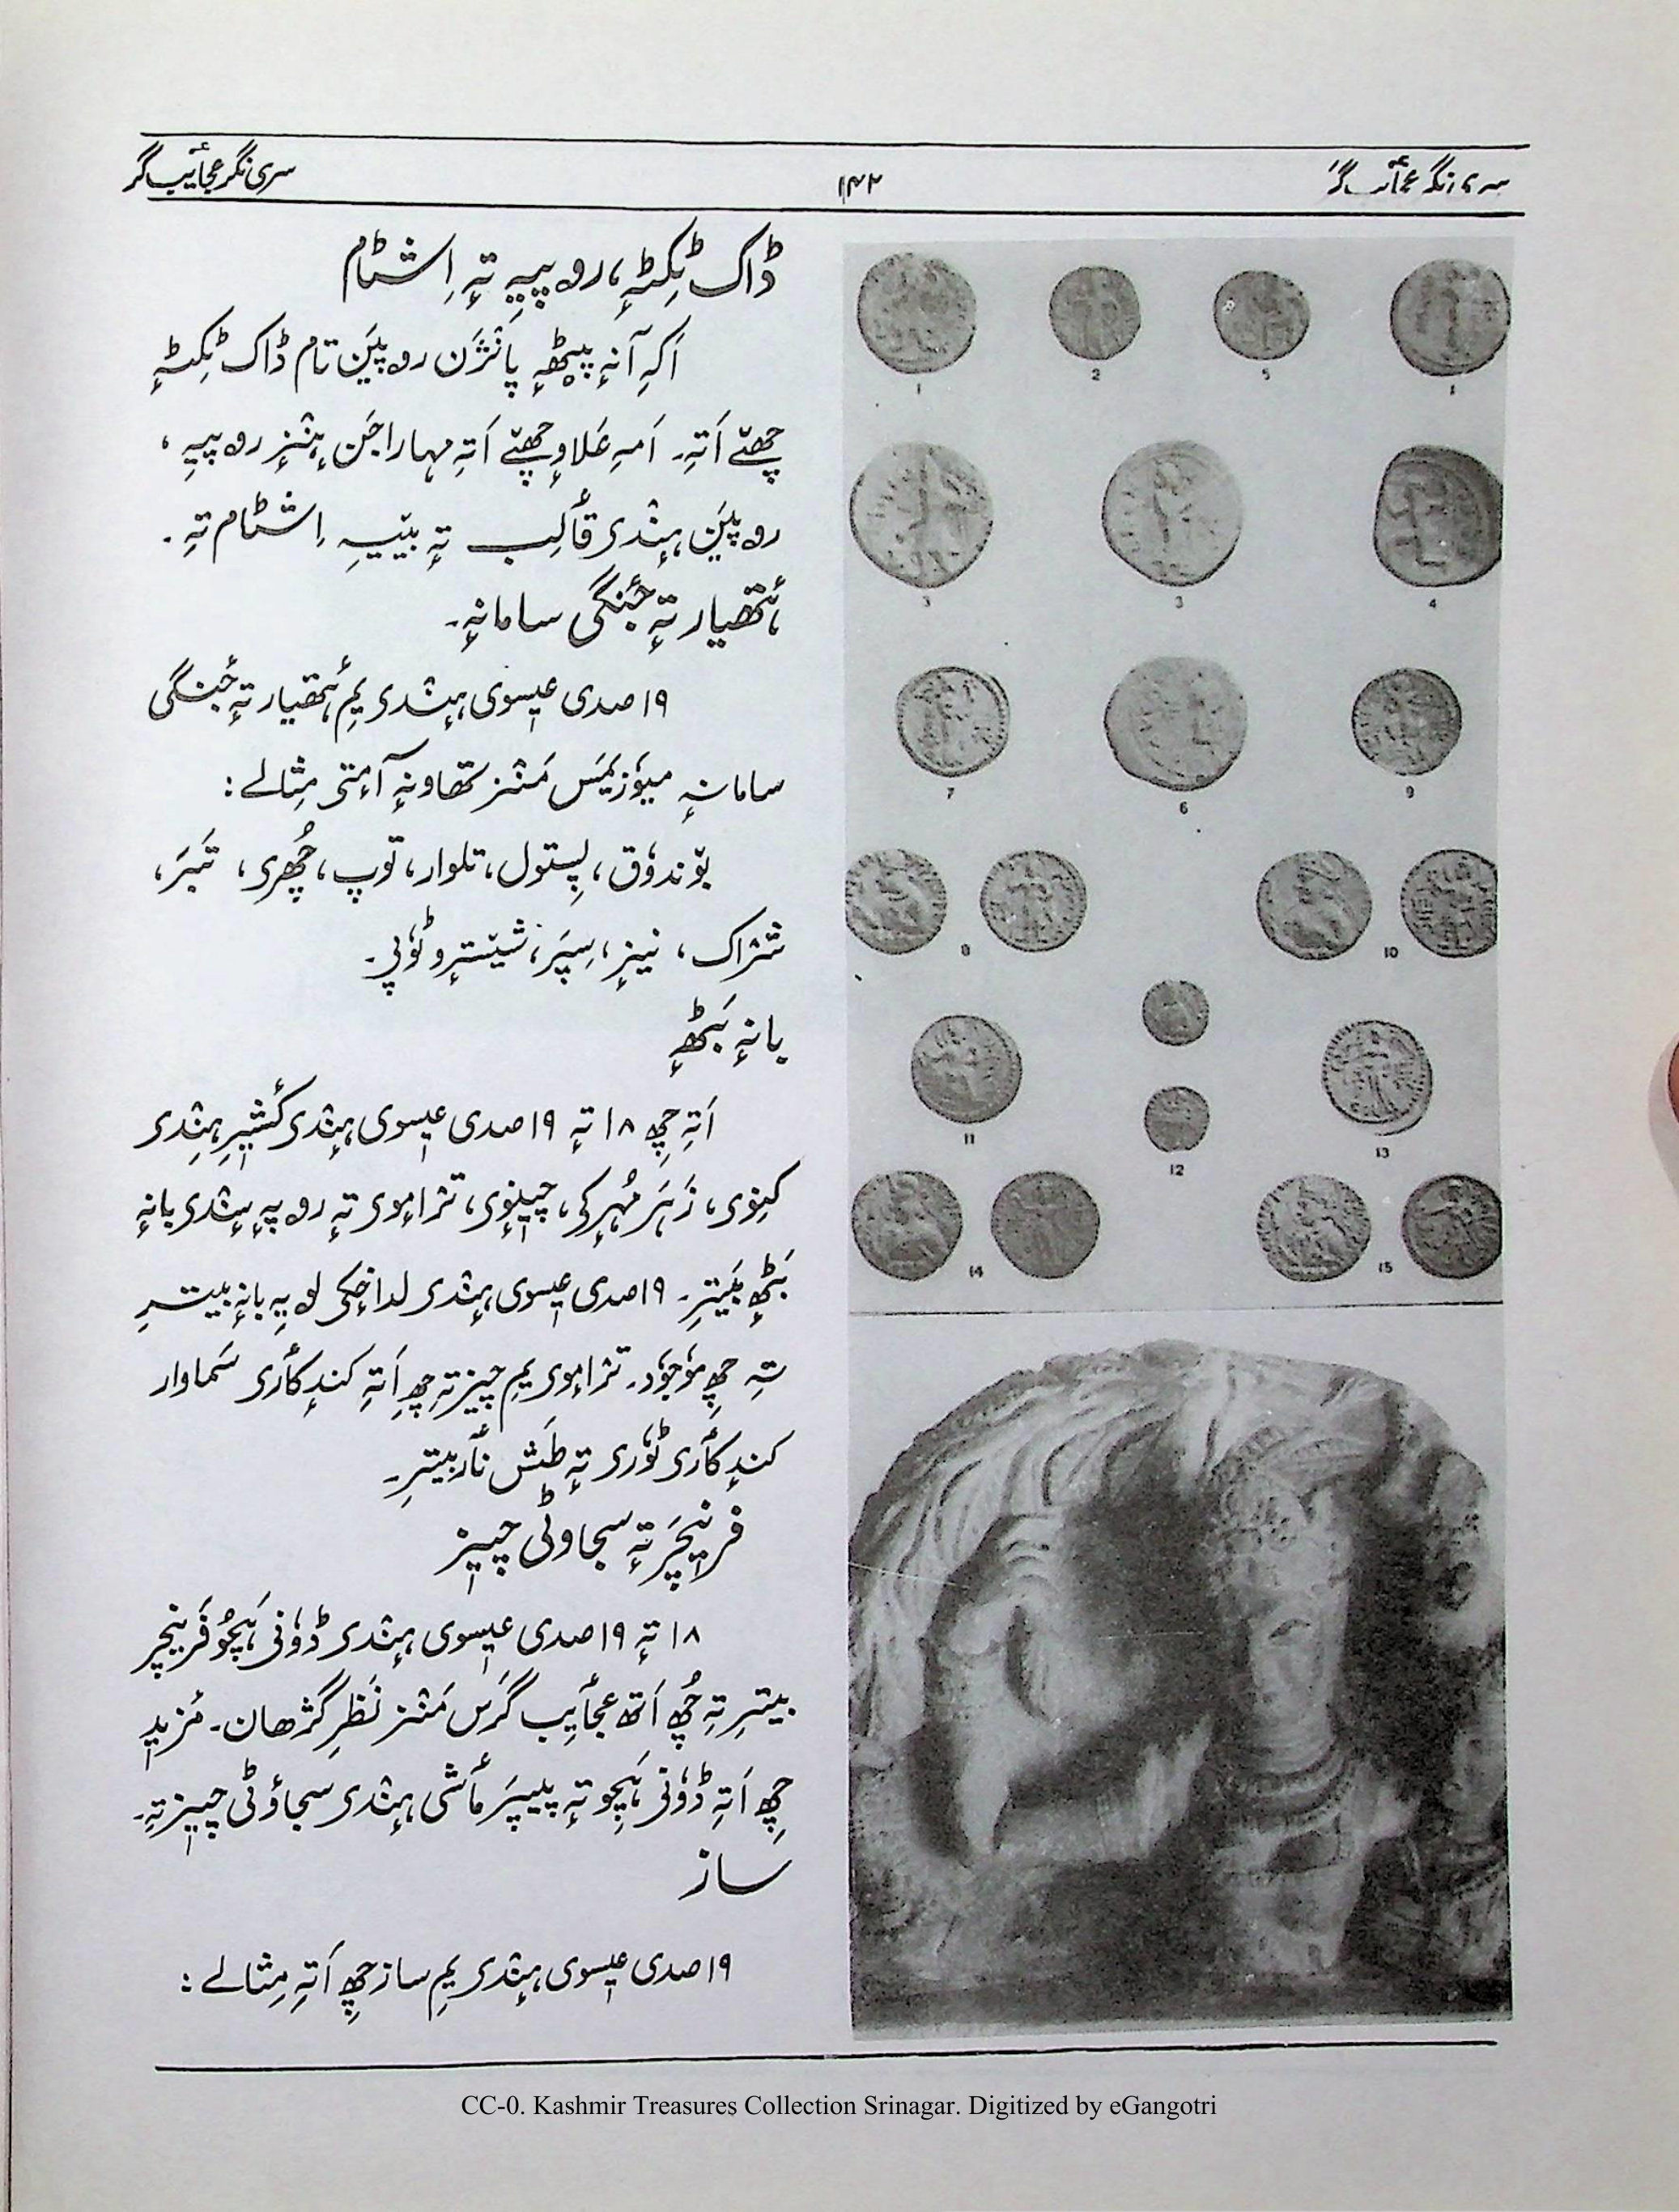 سری نگر عجٲیب گر
۱۴۲
سری نگر عجٲیب گر
1 2 5 1
3 3 4
7 6 9
8 10
11 12 13
14 15
ڈاک ٹِکٹہٕ، روپیہِ تہٕ اِشٹام
اَکہِ آنہٕ پیٹھٕہ پانٛژن روپیَن تام ڈاک ٹِکٹہٕ
چھےٚ اَتہِ۔ اَمہِ عَلاوٕ چھےٚ اَتہِ مہاراجَن ہِنٛزٕ روپیہِ،
روپیَن ہِنٛدؠ قٲلِب تہٕ بیٚیہِ اِشٹام تہِ۔
ہَتھیار تہٕ جنٛگی سامانہٕ۔
۱۹ صدی عیسوی ہِنٛدؠ یِم ہَتھیار تہٕ جنٛگی
سامانہٕ میوٗزیَمس منٛز تھاونہٕ آمٕتؠ مِثالے:
بوٚندوٗق، پِستول، تلوار، توپ، چھُری، تَبَر،
ترٛٹاک، نیزٕ، سِپَر، شیٚسترٕو ٹوٗپؠ۔
بانہٕ بَٹھٕ
اَتہِ چھِ ۱۸ تہٕ ۱۹ صدی عیسوی ہِنٛدؠ کٔشیٖرِ ہِنٛدؠ
کینٛوی، زَہَر مُہرٕکؠ، چیٖنؠ، ترٛامٕوؠ تہٕ روپہٕ ہِنٛدؠ بانہٕ
بَٹھٕ بیٚترِ۔ ۱۹ صدی عیسوی ہِنٛدؠ لداخٕکؠ لویہِ بانہٕ بیٚترِ
تہِ چھِ موٗجوٗد۔ ترٛامٕوؠ یِم چیٖز تہِ چھِ اَتہِ کندٕ کٲری سَماوار
کندٕ کٲری ٹوٗری تہٕ طَش نٲر بیٚترِ۔
فرنیٖچَر تہٕ سجاوٹی چیٖز
۱۸ تہٕ ۱۹ صدی عیسوی ہِنٛدؠ ڈوٗنؠ ہَچُو فَرنیچر
بیٚترِ تہِ چھُ اَتھ عجٲیب گرَس منٛز نَظرِ گژھان۔ مَزید
چھِ اَتہِ ڈوٗنؠ ہَچِو تہٕ پیپَر مٲشی ہِنٛدؠ سجاوٹی چیٖز تہِ۔
ساز
۱۹ صدی عیسوی ہِنٛدؠ یِم ساز چھِ اَتہِ مِثالے:
CC-0. Kashmir Treasures Collection Srinagar. Digitized by eGangotri